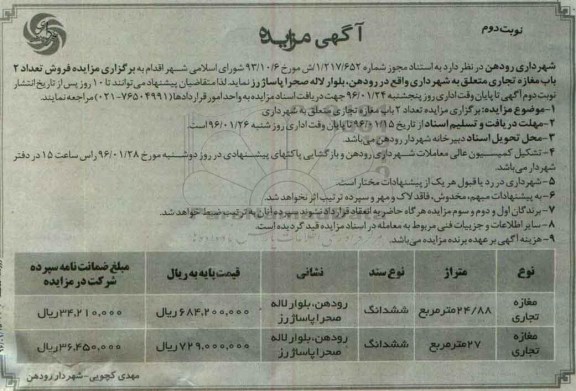 نوبت دوم
آگهی مزایده
شهرداری رودهن در نظر دارد به استناد مجوز شماره ۱/۲۱۷/۶۵۲/ش مورخ ۹۳/۱۰/۶ شورای اسلامی شهر اقدام به برگزاری مزایده فروش تعداد ۲
باب مغازه تجاری متعلق به شهرداری واقع در رودهن، بلوار لاله صحرا پاساژ رز نماید لذا متقاضیان پیشنهاد می توانند تا ۱۰ روز پس از تاریخ انتشار
نوبت دوم آگهی تا پایان وقت اداری روز پنجشنبه ۹۶/۰۱/۲۴ جهت دریافت اسناد مزایده به واحد امور قراردادها (۷۶۵۰۴۹۹۱-۰۲۱) مراجعه نمایند.
۱-موضوع مزایده: برگزاری مزایده تعداد ۲ باب مغازه تجاری متعلق به شهرداری
۲-مهلت دریافت و تسلیم اسناد از تاریخ ۹۶/۰۱/۱۵ تا پایان وقت اداری روز شنبه ۹۶/۰۱/۲۶ است.
۳-محل تحویل اسناد دبیرخانه شهردار رودهن می باشد.
۴-تشکیل کمیسیون عالی معاملات شهرداری رودهن و بازگشایی پاکتهای پیشنهادی در روز دوشنبه مورخ ۹۶/۰۱/۲۸ راس ساعت ۱۵ در دفتر
شهردار می باشد.
۵-شهرداری در رد یا قبول هر یک از پیشنهادات مختار است.
۶-به پیشنهادات مبهم، مخدوش، فاقد لاک و مهر و سپرده ترتیب اثر نخواهد شد.
۷-برندگان اول و دوم و سوم مزایده هرگاه حاضر به انعقاد قرارداد نشوند سپرده آنان به ترتیب ضبط خواهد شد.
۸-سایر اطلاعات و جزییات فنی مربوط به معامله در اسناد مزایده قید گردیده است.
۹-هزینه آگهی بر عهده برنده مزایده می باشد.
نوع متراژ نوع سند نشانی قیمت پایه به ریال مبلغ ضمانت نامه سپرده شرکت در مزایده
مغازه تجاری ۲۴/۸۸مترمربع ششدانگ رودهن، بلوار لاله صحرا پاساژ رز ۶۸۴,۲۰۰,۰۰۰ریال ۳۴,۲۱۰,۰۰۰ریال
مغازه تجاری ۲۷مترمربع ششدانگ رودهن، بلوار لاله صحرا پاساژ رز ۷۲۹,۰۰۰,۰۰۰ریال ۳۶,۴۵۰,۰۰۰ریال
مهدی کجویی-شهردار رودهن